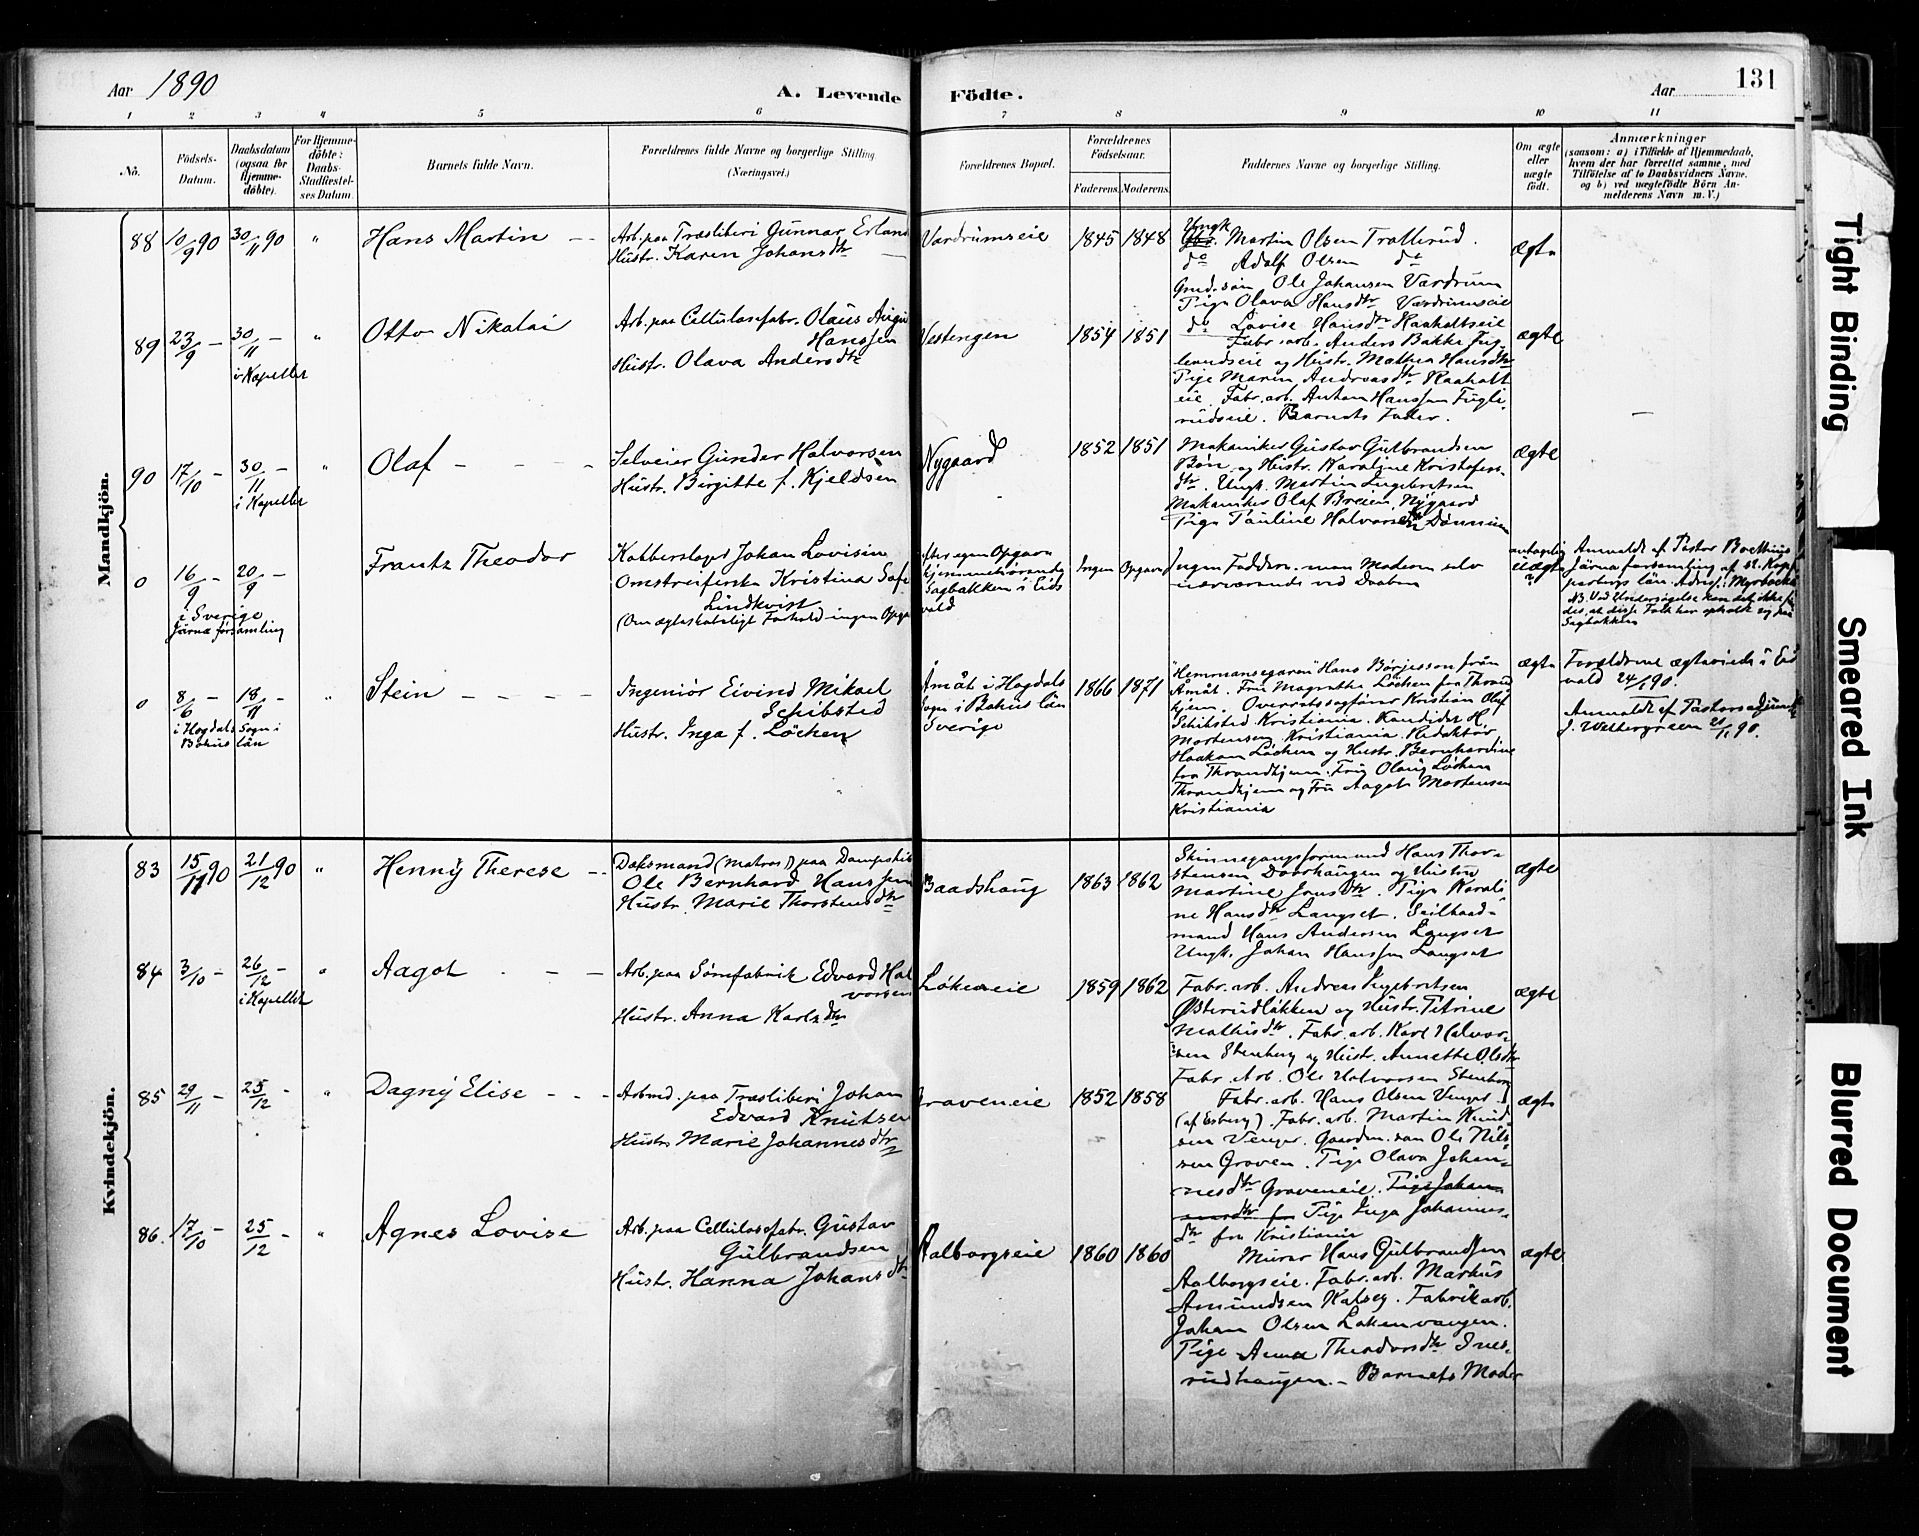 Aar 1890
A. Levende Födte.
Aar
131
1 2 3 4 5 6 7 8 9 10 11
No.
Födsels-Datum.
Daabsdatum (ogsaa for Hjemme-döbte).
For Hjemme-döbte: Daabs-Stadfæstelses Datum.
Barnets fulde Navn.
Forældrenes fulde Navne og borgerlige Stilling (Næringsvei.)
Forældrenes Bopæl.
Forældrenes Födselsaar.
Faderens. Moderens.
Faddernes Navne og borgerlige Stilling.
Om ægte eller uægte födt.
Anmærkninger
(saasom: a) i Tilfælde af Hjemmedaab,
hvem der har forrettet samme, med
Tilföielse af to Daabsvidners Navne.
og b) ved uægtefödte Börn An-
melderens Navn m. V.)
Mandkjön.
88 10/9 90 30/11 90 " Hans Martin
Arb. paa Træsliberi Gunnar Erland
Hustr. Karen Johansdtr
Vardrumseie 1845 1848
Ungk. Martin Olsen Tratterud.
do Adolf Olsen do
Gaard. søn Ole Johansen Vardrum
Pige Olava Hansdtr Vardrumseie
do Lovise Hansdtr Raaholtseie
ægte
89 23/9 - 30/11 - i Kapellet " Otto Nikolai
Arb. paa Cellulosefabr. Olaus August
Hanssen
Hustr. Olava Andersdtr
Vestengen 1854 1851
Fabr. arb. Anders Bakke Fug-
lerudseie og Hustr. Mathea Hansdtr
Pige Maren Andreasdtr. Raaholt
eie. Fabr. arb. Anton Hanssen Fugle
rudseie. Barnets Fader.
ægte
90 17/10 - 30/11 - i Kapellet " Olaf
Selveier Gunder Halvorsen
Hustr. Birgitte f. Kjeldsen
Nygaard 1852 1851
Mekaniker Gustav Gulbrandsen
Bøn og Hustr. Karoline Kristofers-
dtr. Ungk. Martin Ingebretsen
Mekaniker Olaf Breien, Nygaard
Pige Pauline Halvorsdtr
ægte
0 16/9 - 20/9 - i Sverige Järna församling
Frantz Theodor
Kobberslager Johan Lovisin
Omstreiferske Kristina Sofie
Lindkvist
(Om ægteskabeligt Forhold ingen Opga
efter egen Opgave
hjemmehørende
Sagbakken i Eids
vold
Ingen Opgave
Ingen Faddere. men Moderen selv
nærværende ved Daaben
antagelig
uægte
?
Anmeldt af Pastor Boethius
Järna forsamling af St. Kop
parbergs län. Adress: Myrbacka
NB. Ved Undersøgelse kan det ikke fin
des, at disse Folk har opholdt sig paa
Sagbakken
0 8/6 - 18/11 - i Hogdals Sogn i Bohus län " Stein
Ingeniør Eivind Mikael
Schibsted
Hustr. Inga f. Löchen
Åmåt i Hogdals
Sogn i Bohus län
Sverige
1866 1871
"Hemmansegaren" Hans Börjesson från
Åmåt. Fru Magrethe Löchen fra Thrond
hjem. Overretssagfører Kristian Olaf
Schibsted Kristiania. Kandidat H.
Mortensen Kristiania. Redaktør
Haakon Löchen og Hustr. Bernhardine
fra Throndhjem. Frk Olaug Löchen
Throndhjem og Fru Aagot Mortensen
Kristiania
ægte
Forældrene ægteviede i Eids
vold 24/1 90.
Anmeldt af Pastorsadjunkt
J. Weltergreen 21/1 90.
Kvindekjön.
83 15/11 90 21/12 90 " Henny Therese
Dæksmand (Matros) paa Dampskib
Ole Bernhard Hanssen
Hustr. Marie Thorstensdtr
Baadshaug 1863 1862
Skinnegangsformand Hans Thor-
stensen Doorhaugen og Hustru
Martine Jonsdtr. Pige Karoli
ne Hansdtr Langset. Seilbaad-
mand Hans Andersen Langset
Ungk. Johan Hanssen Langset
ægte
84 3/10 - 26/12 - i Kapellet " Aagot
Arb. paa Sømfabrik Edvard Hal
vorsen
Hustr. Anna Karlsdtr
Løkeneie 1859 1862
Fabr. arb. Andreas Ingebretsen
Østerudløkken og Hustr. Petrine
Mathisdtr. Fabr. arb. Karl Halvor-
sen Stenberg og Hustr. Annette Olsdtr
Fabr. Arb. Ole Halvorsen Stenberg
ægte
85 29/11 - 25/12 - " Dagny Elise
Arbmd. paa Træsliberi Johan
Edvard Knutsen
Hustr Marie Johannesdtr
Graveneie 1852 1858
Fabr. arb. Hans Olsen Venger
(af Esberg). Fabr. arb. Martin Knud
sen Venger. Gaardm. søn Ole Nils
sen Graven. Pige Olava Johan-
nesdtr Graveneie. Pige Johan
nesdtr fra Pige Inga Johannes-
dtr fra Kristiania
ægte
86. 17/10 - 25/12 - " Agnes Lovise
Arb. paa Cellulosefabr. Gustav
Gulbrandsen
Hustr. Hanna Johansdtr
Aalborgseie 1860 1860
Murer Hans Gulbrandsen
Aalborgseie. Fabr. arb. Markus
Amundsen Kalseg. Fabrikarb.
Johan Olsen Løkenvangen.
Pige Anna Theodorsdtr Ines-
rudhaugen. - Barnets Moder
ægte
Tight Binding
Smeared Ink
Blurred Document